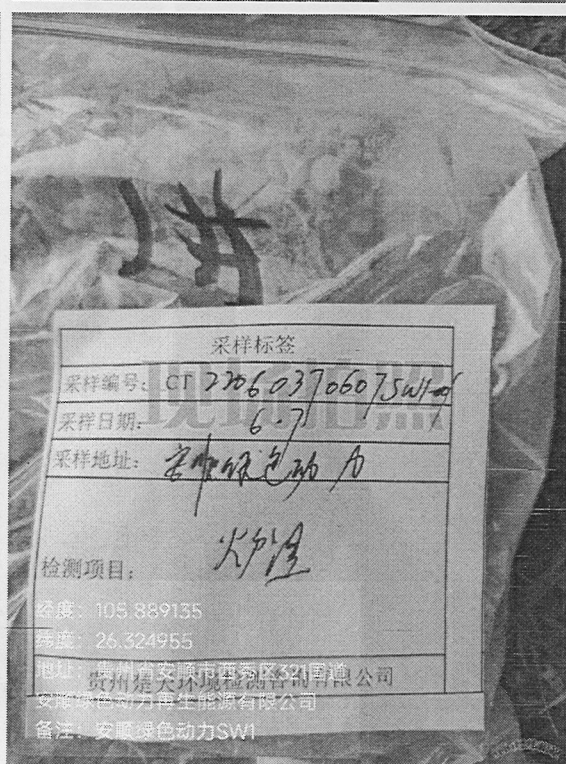 1#
采样标签
采样编号: CT 22060370607SW1-
采样日期: 6.7
采样地址: 安顺绿色动力
炉渣
检测项目:
经度: 105.889135
纬度: 26.324955
地址: 贵州省安顺市西秀区321国道
贵州楚天环境检测咨询有限公司
安顺绿色动力再生能源有限公司
备注: 安顺绿色动力SW1
现场拍照